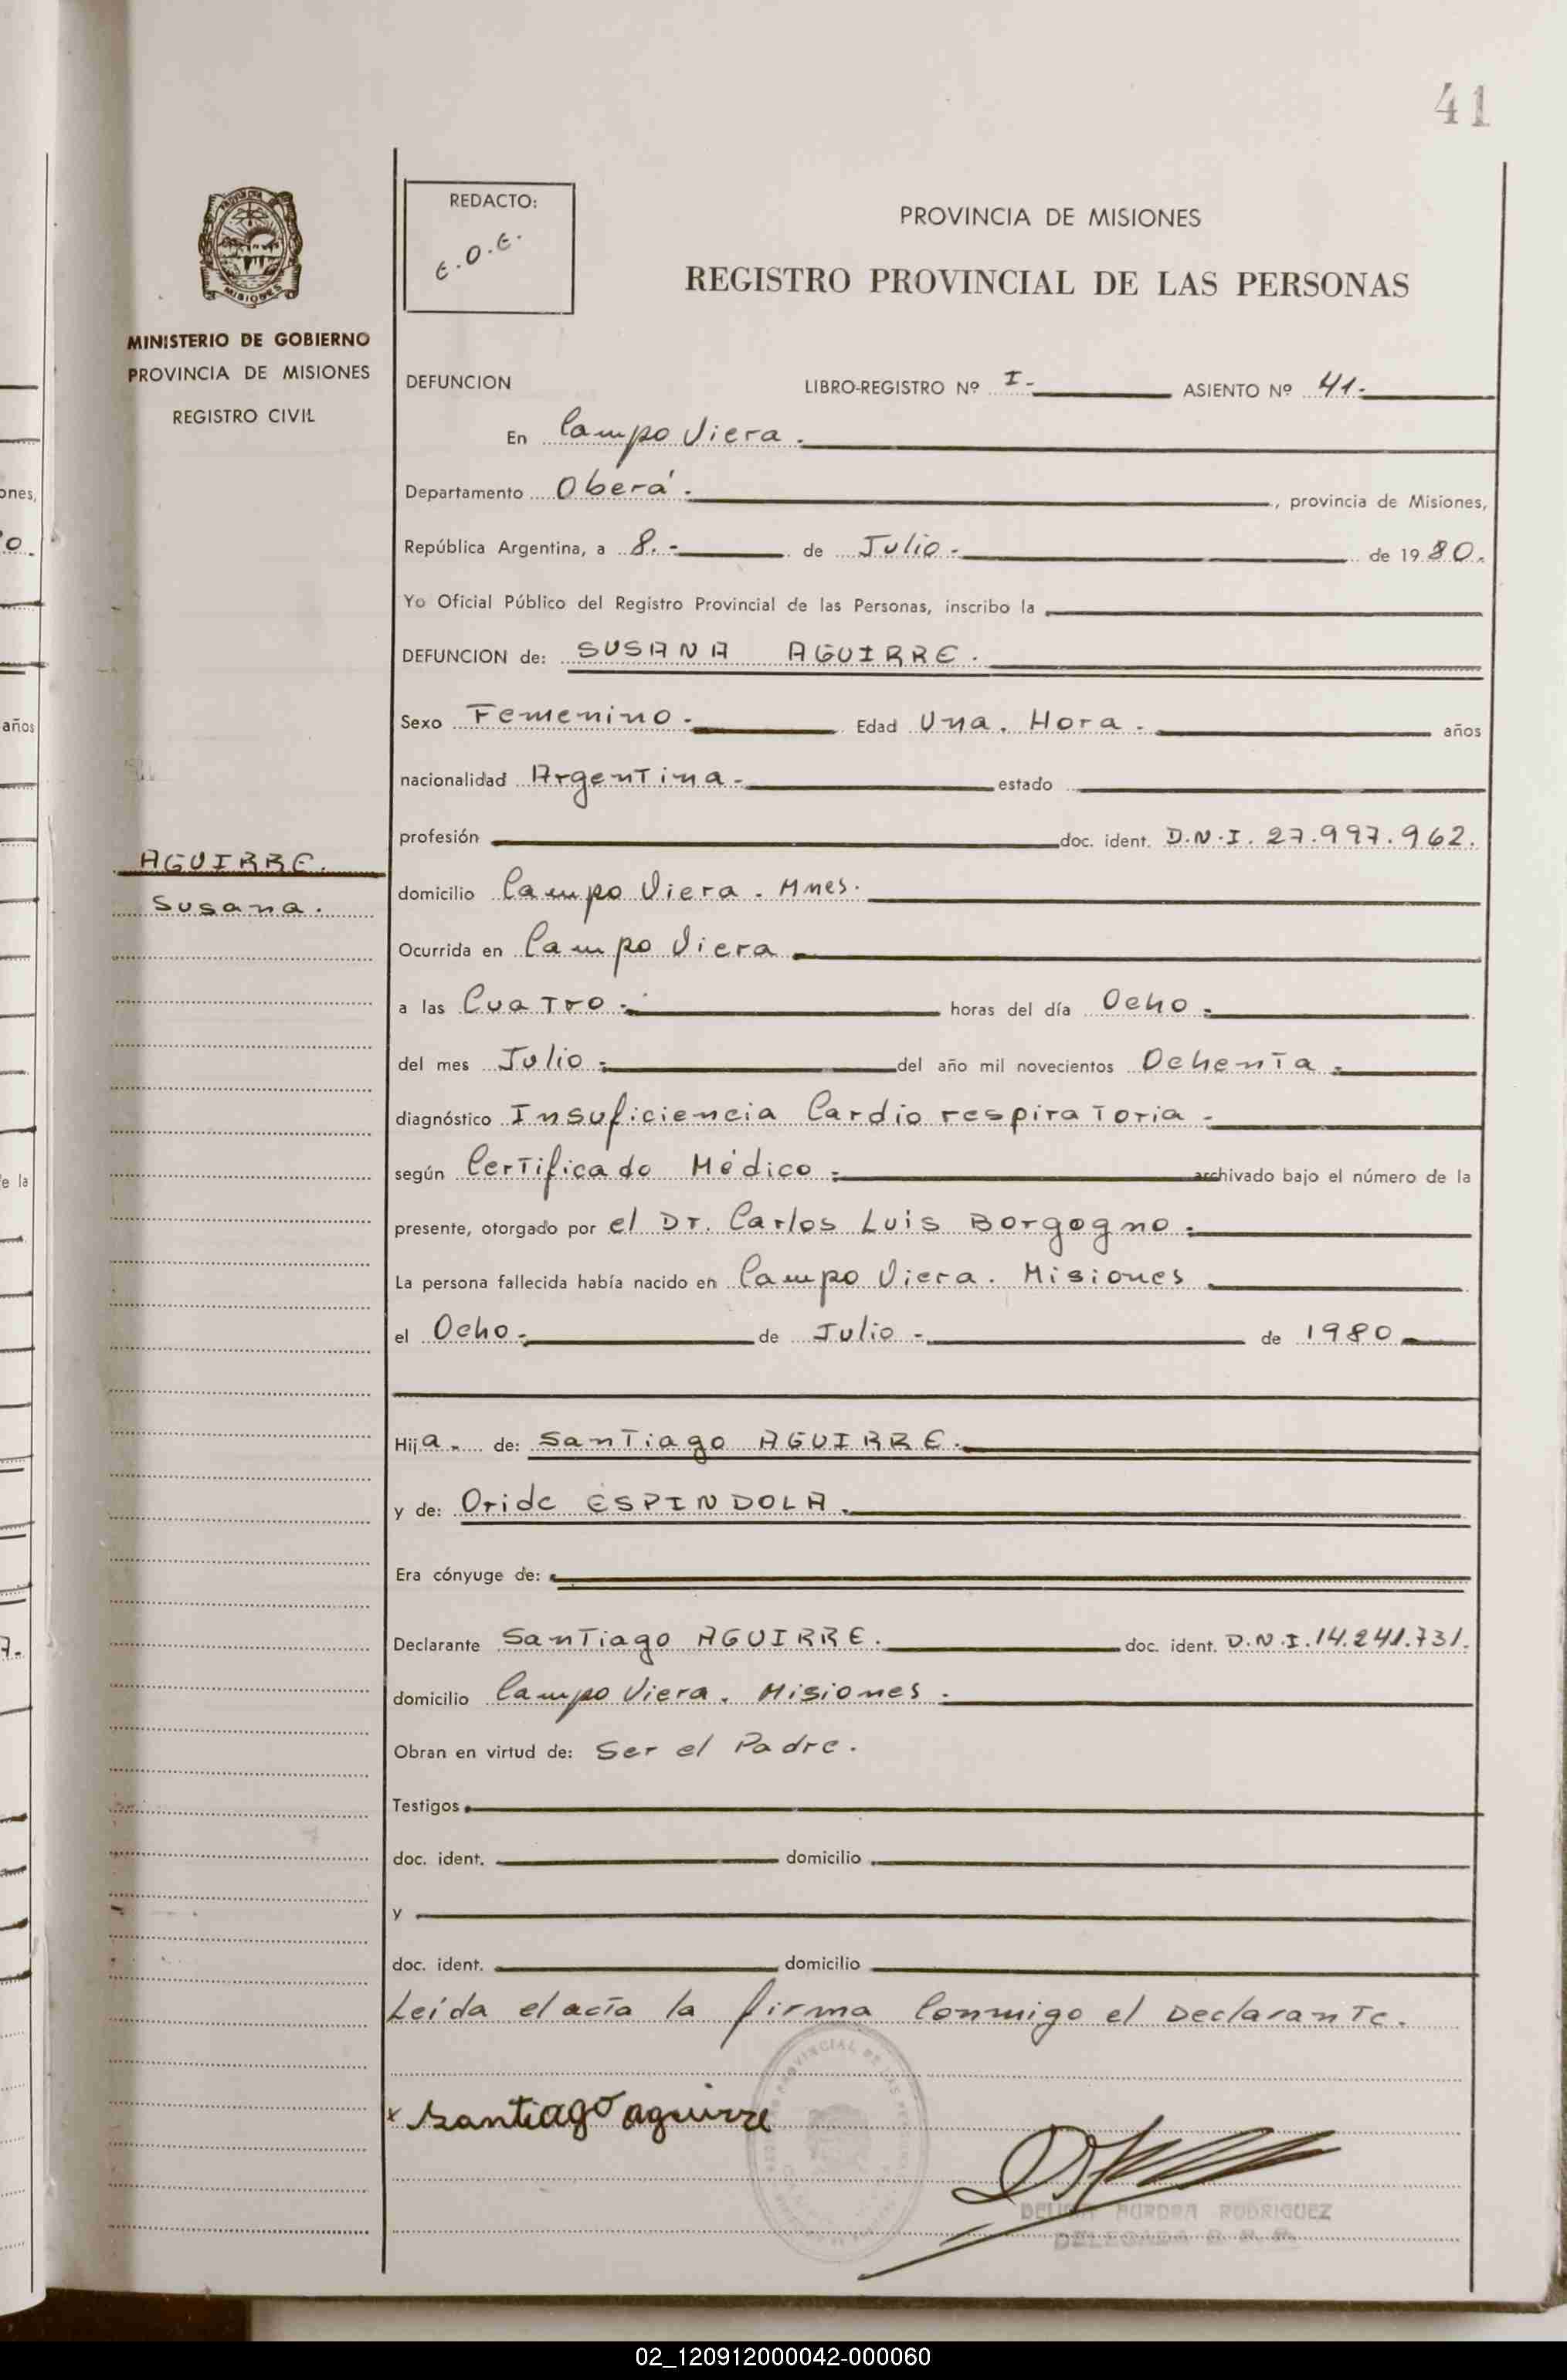 41
REDACTO:
E.O.E.
PROVINCIA DE MISIONES
REGISTRO PROVINCIAL DE LAS PERSONAS
MISIONES
MINISTERIO DE GOBIERNO
PROVINCIA DE MISIONES
REGISTRO CIVIL
DEFUNCION LIBRO-REGISTRO Nº I.- ASIENTO Nº 41.-
En Campo Viera.-
Departamento Oberá.- , provincia de Misiones,
República Argentina, a 8.- de Julio.- de 1980.
Yo Oficial Público del Registro Provincial de las Personas, inscribo la
DEFUNCION de: SUSANA AGUIRRE.
Sexo Femenino.- Edad Una. Hora.- años
nacionalidad Argentina.- estado
profesión doc. ident. D.N.I. 27.997.962.
AGUIRRE.
Susana.
domicilio Campo Viera. Mnes.
Ocurrida en Campo Viera
a las Cuatro.- horas del día Ocho.-
del mes Julio.- del año mil novecientos Ochenta.-
diagnóstico Insuficiencia Cardio respiratoria.-
según Certificado Médico.- archivado bajo el número de la
presente, otorgado por el Dr. Carlos Luis Borgogno.-
La persona fallecida había nacido en Campo Viera. Misiones
el Ocho.- de Julio.- de 1980
Hija. de: Santiago AGUIRRE.
y de: Oride ESPINDOLA.
Era cónyuge de:
Declarante Santiago AGUIRRE. doc. ident. D.N.I. 14.241.731.
domicilio Campo Viera. Misiones.
Obran en virtud de: Ser el Padre.
Testigos
doc. ident. domicilio
y
doc. ident. domicilio
Leída el acta la firma Conmigo el Declarante.
x Santiago aguirre
AURORA RODRIGUEZ
DELEGADA
ones,
0.
años
e la
7.
02_120912000042-000060